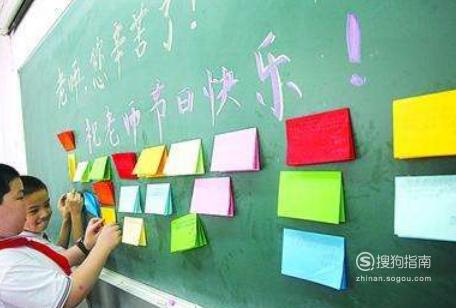 老师,您辛苦了!
祝老师节日快乐!
搜狗指南
zhinan.sogou.com